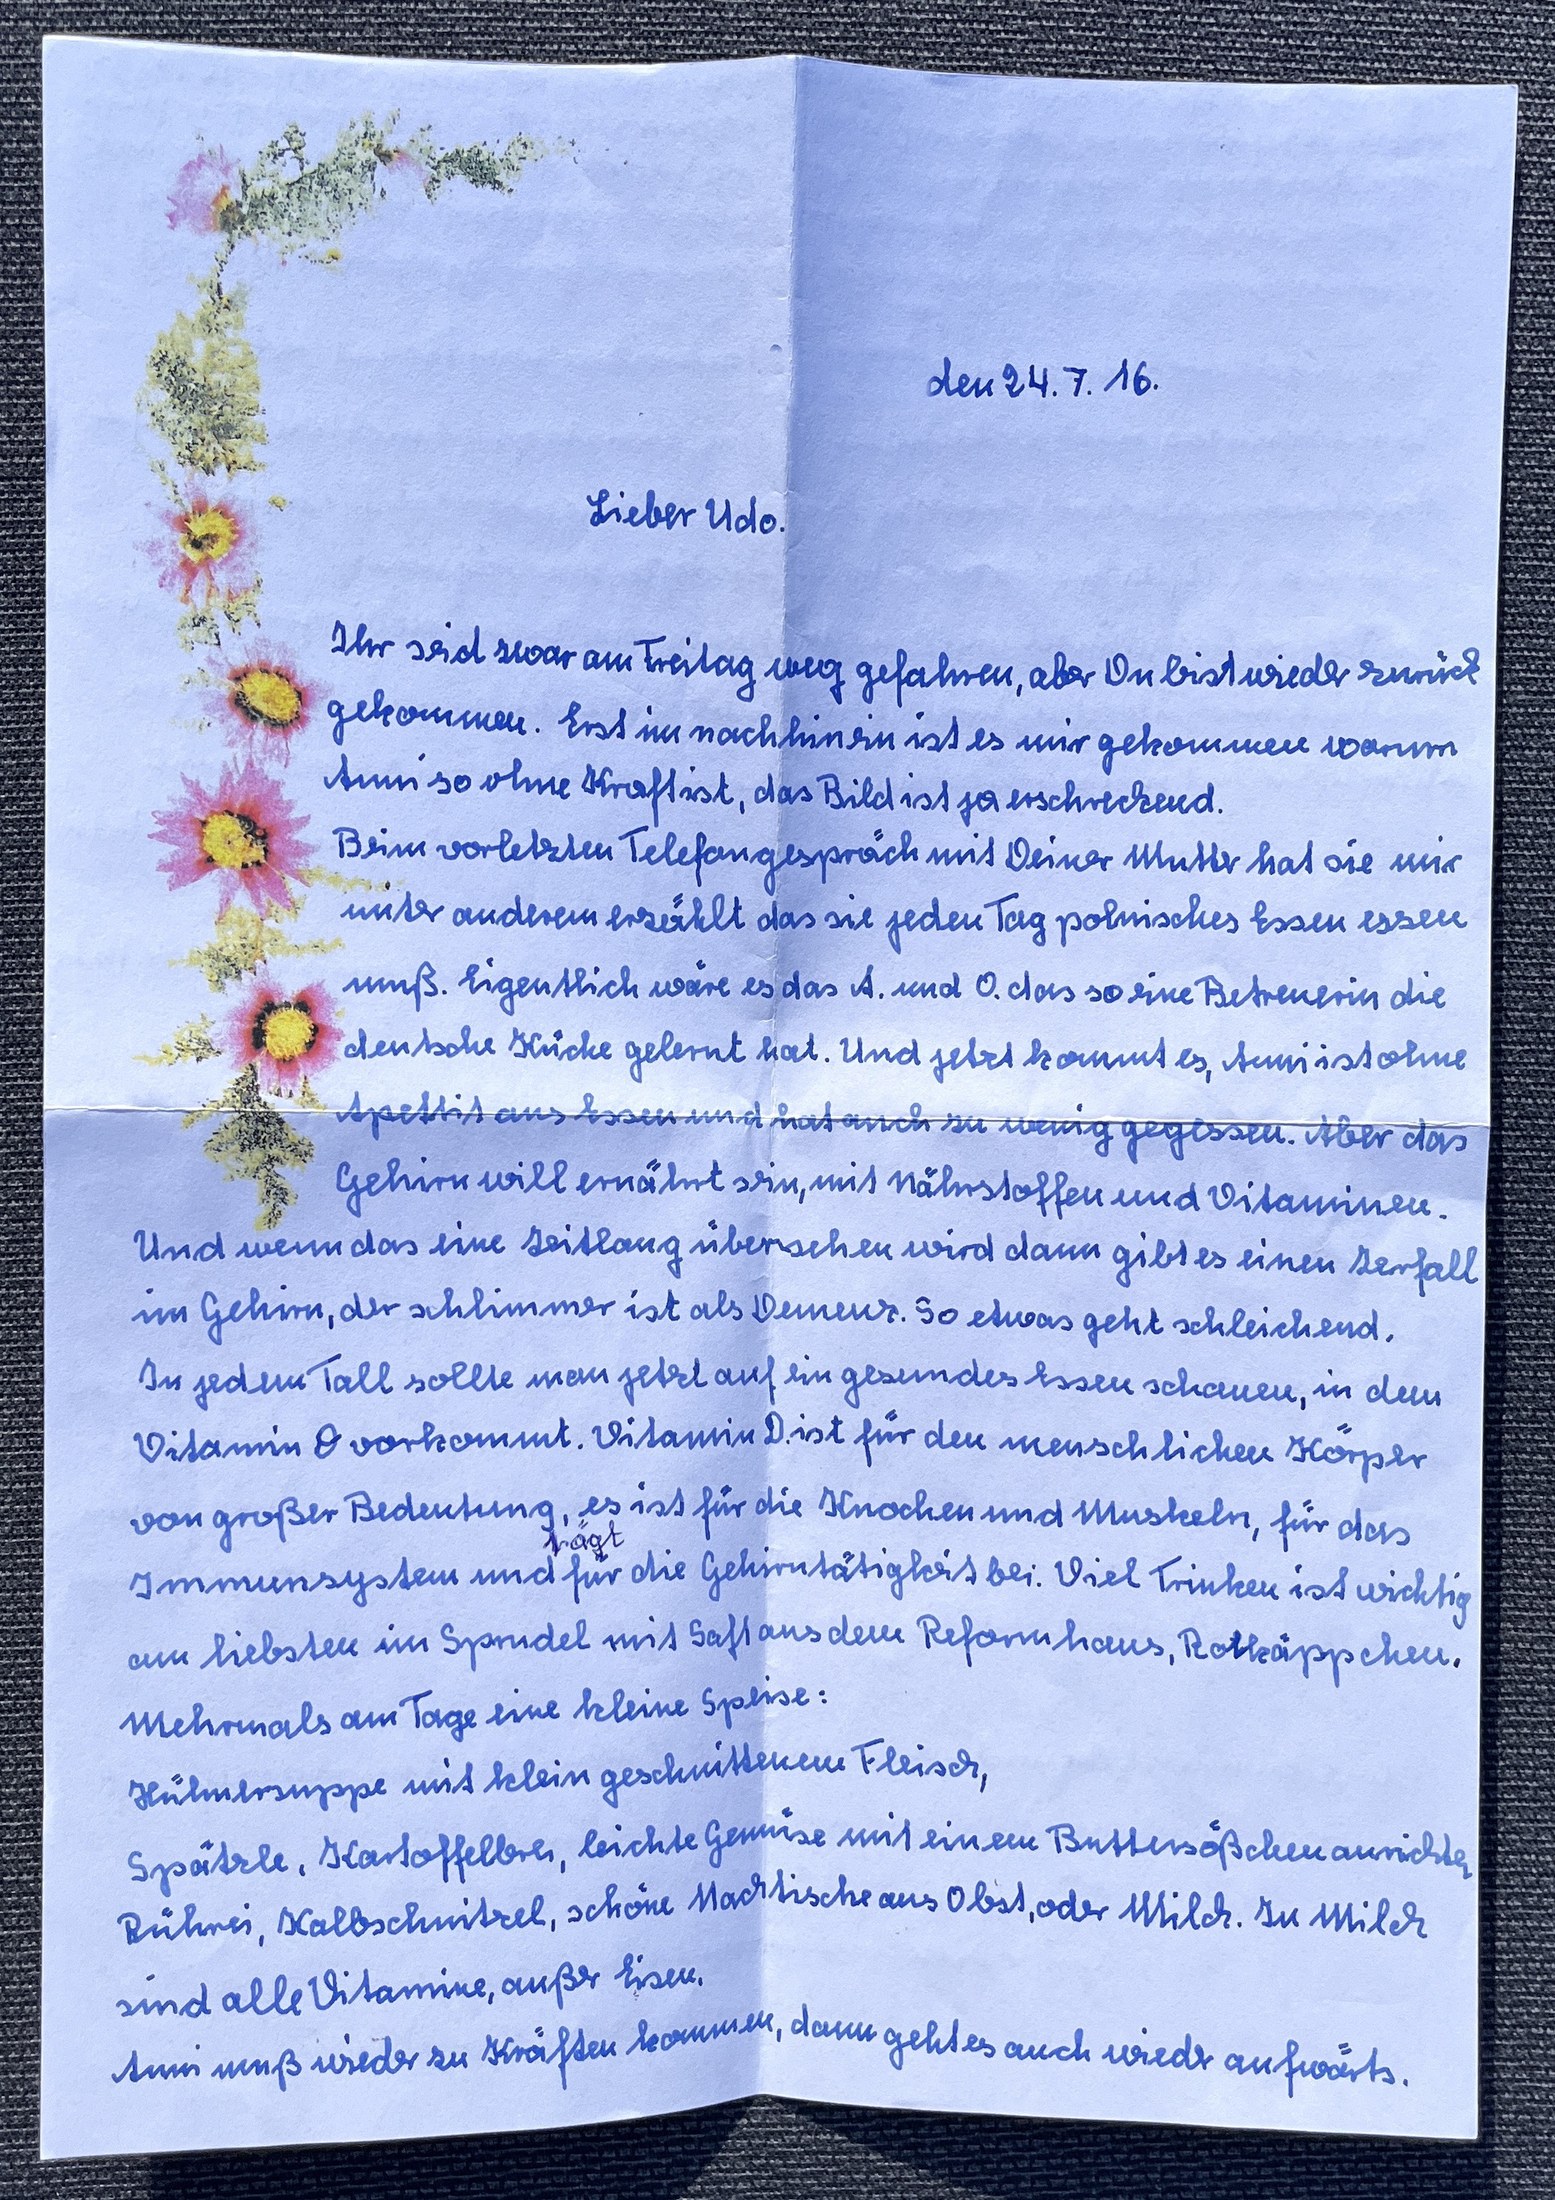 den 24. 7. 16.
Lieber Udo.
Ihr seid zwar am Freitag weg gefahren, aber Du bist wieder zurück
gekommen. Erst im nachhinein ist es mir gekommen warum
Anni so ohne Kraft ist, das Bild ist ja erschreckend.
Beim vorletzten Telefongespräch mit Deiner Mutter hat sie mir
unter anderem erzählt das sie jeden Tag polnisches Essen essen
muß. Eigentlich wäre es das A. und O. das so eine Betreuerin die
deutsche Küche gelernt hat. Und jetzt kommt es, Anni ist ohne
Apettit ans Essen und hat auch zu wenig gegessen. Aber das
Gehirn will ernährt sein, mit Nährstoffen und Vitaminen.
Und wenn das eine Zeitlang übersehen wird dann gibt es einen Zerfall
im Gehirn, der schlimmer ist als Demenz. So etwas geht schleichend.
In jedem Fall sollte man jetzt auf ein gesundes Essen schauen, in dem
Vitamin D vorkommt. Vitamin D. ist für den menschlichen Körper
von großer Bedeutung, es ist für die Knochen und Muskeln, für das
trägt
Immunsystem und für die Gehirntätigkeit bei. Viel Trinken ist wichtig
am liebsten im Sprudel mit Saft aus dem Reformhaus, Rotkäppchen.
Mehrmals am Tage eine kleine Speise:
Hühnersuppe mit klein geschnittenem Fleisch,
Spätzle, Kartoffelbrei, leichte Gemüse mit einem Buttersößchen anrichten
Rührei, Kalbschnitzel, schöne Nachtische aus Obst, oder Milch. In Milch
sind alle Vitamine, außer Eisen.
Anni muß wieder zu Kräften kommen, dann geht es auch wieder aufwärts.